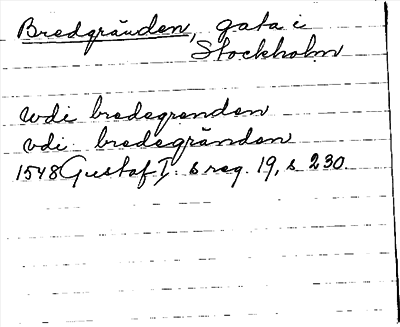 Bredgränden, gata i
Stockholm
wdi bredegrenden
vdi bredegränden
1548 Gustaf I:s reg. 19, s 230.